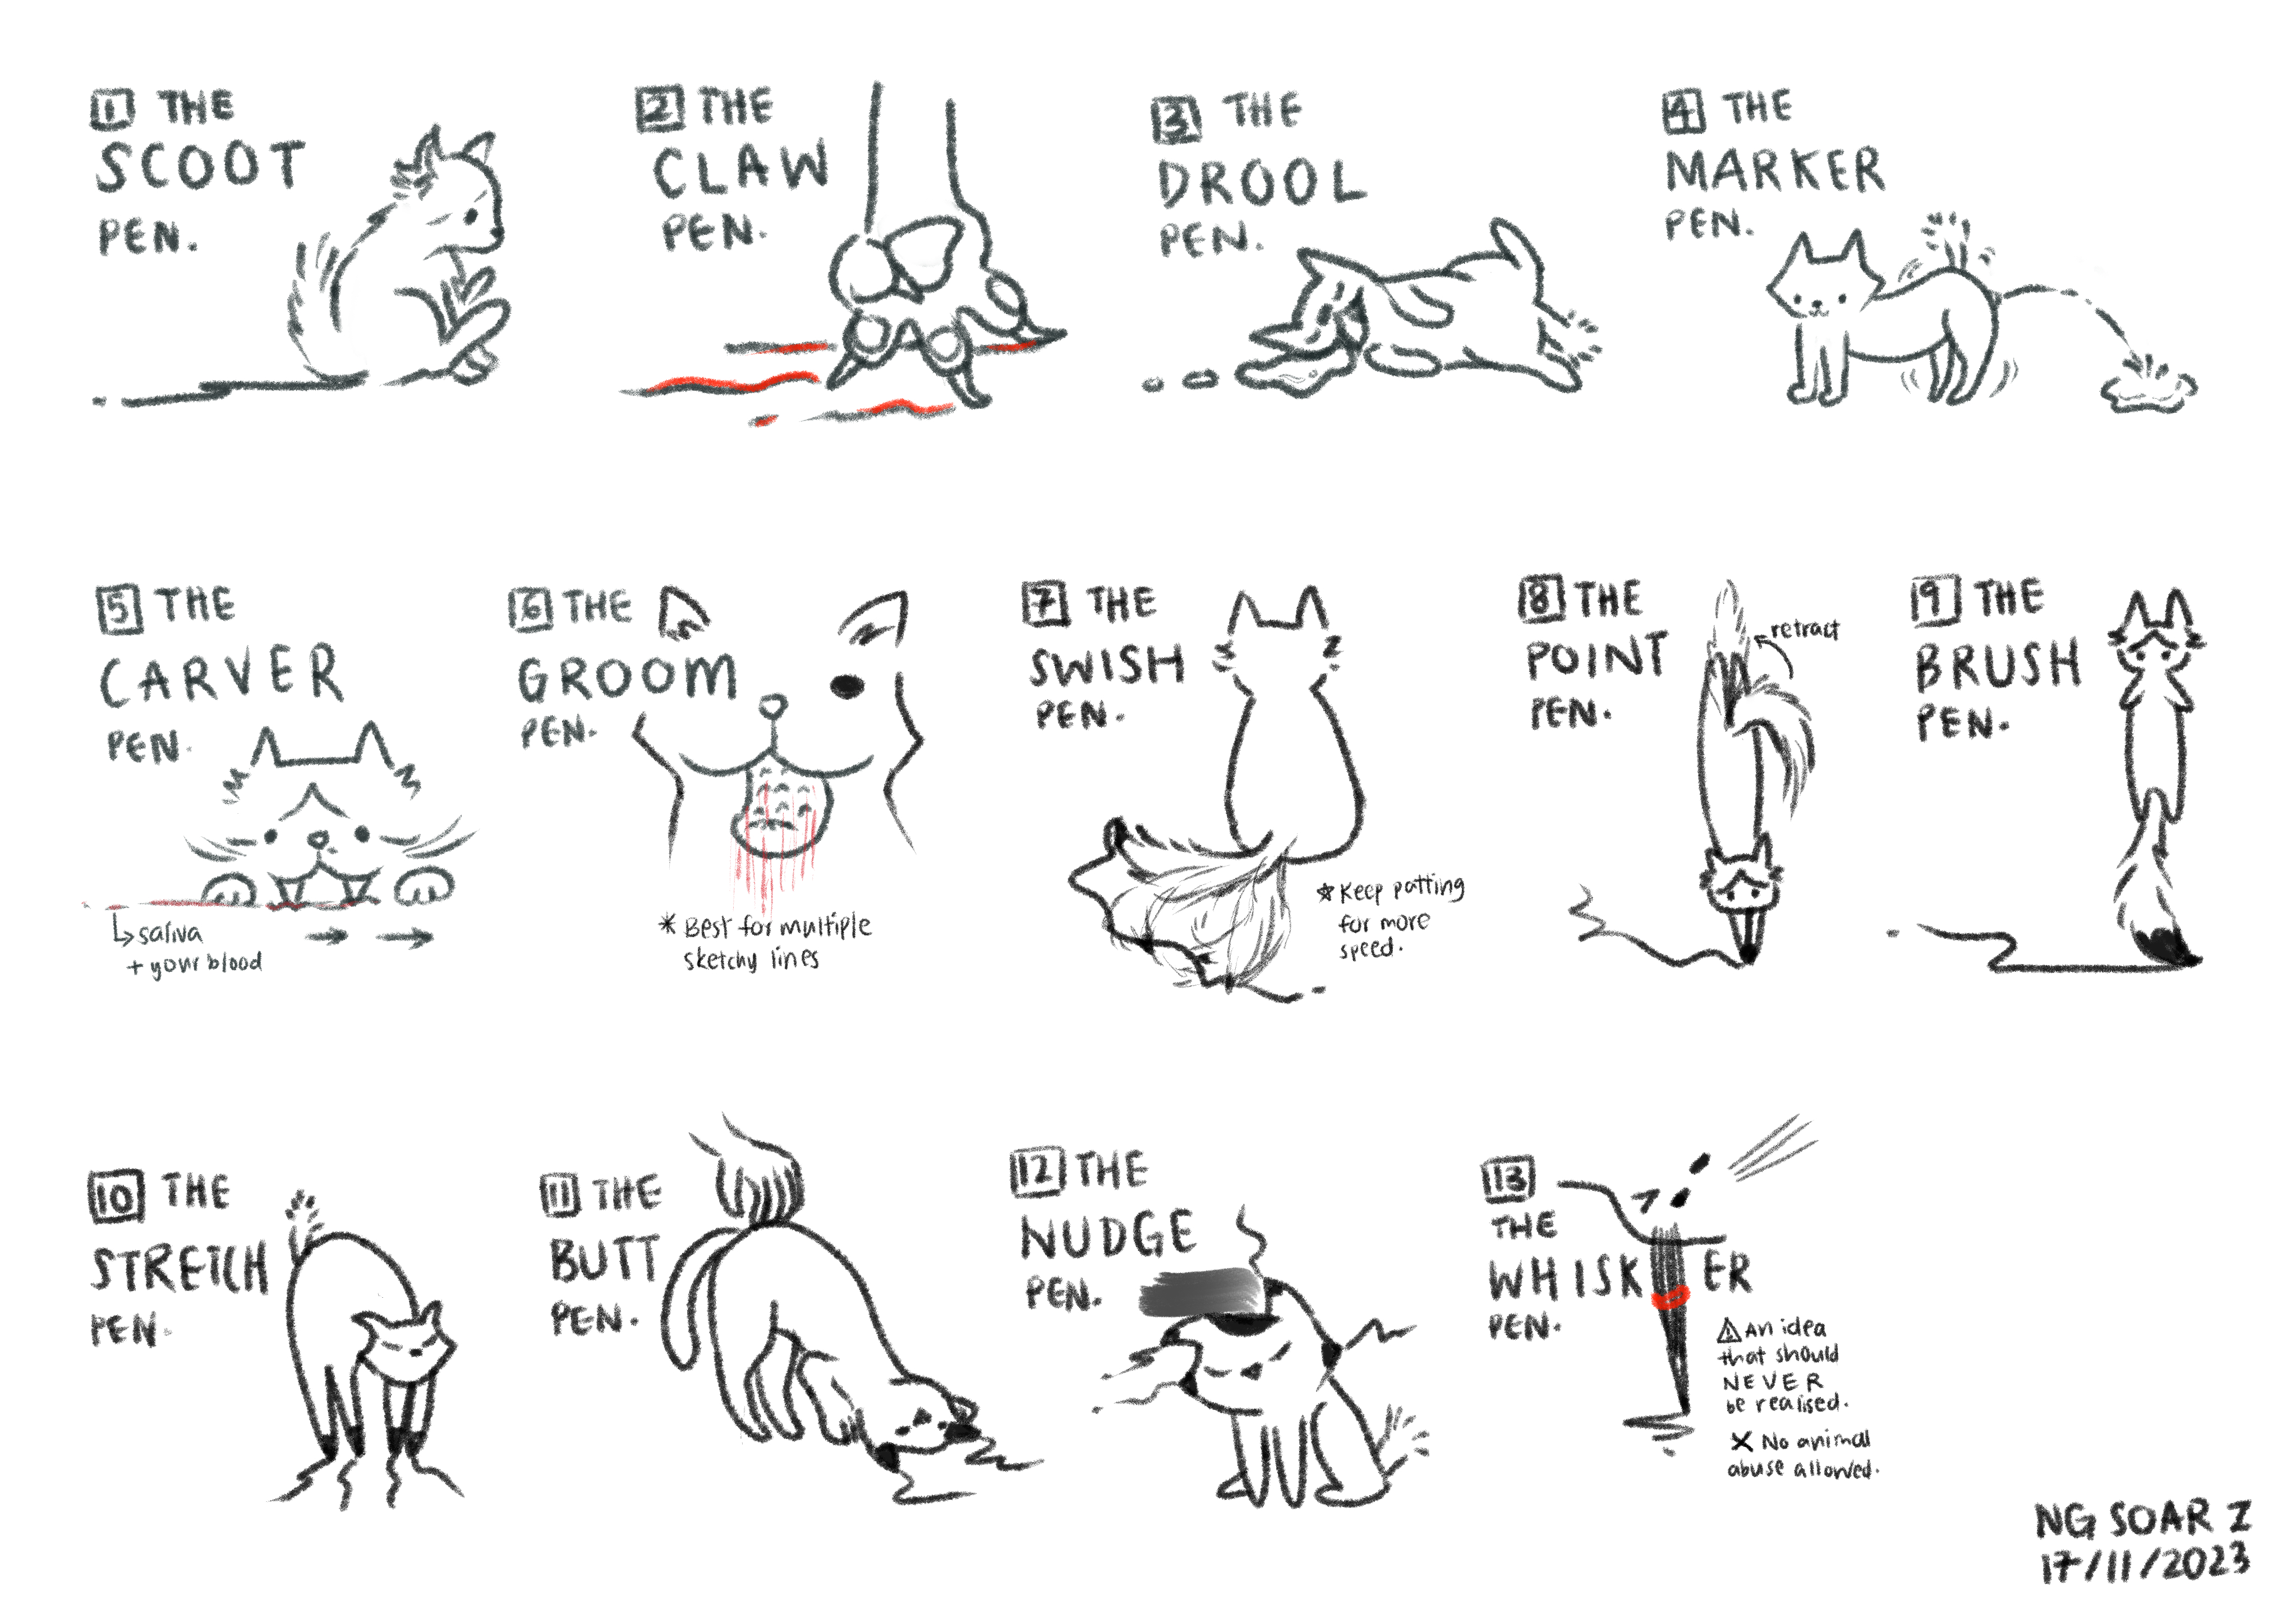 1 THE
SCOOT
PEN.
2 THE
CLAW
PEN.
3 THE
DROOL
PEN.
4 THE
MARKER
PEN.
5 THE
CARVER
PEN.
saliva
+ your blood
6 THE
GROOM
PEN.
* Best for multiple
sketchy lines
7 THE
SWISH
PEN.
☆ Keep patting
for more
speed.
8 THE
POINT
PEN.
retract
9 THE
BRUSH
PEN.
10 THE
STRETCH
PEN.
11 THE
BUTT
PEN.
12 THE
NUDGE
PEN.
13
THE
WHISKER
PEN.
⚠ An idea
that should
NEVER
be realised.
X No animal
abuse allowed.
NG SOAR Z
17/11/2023